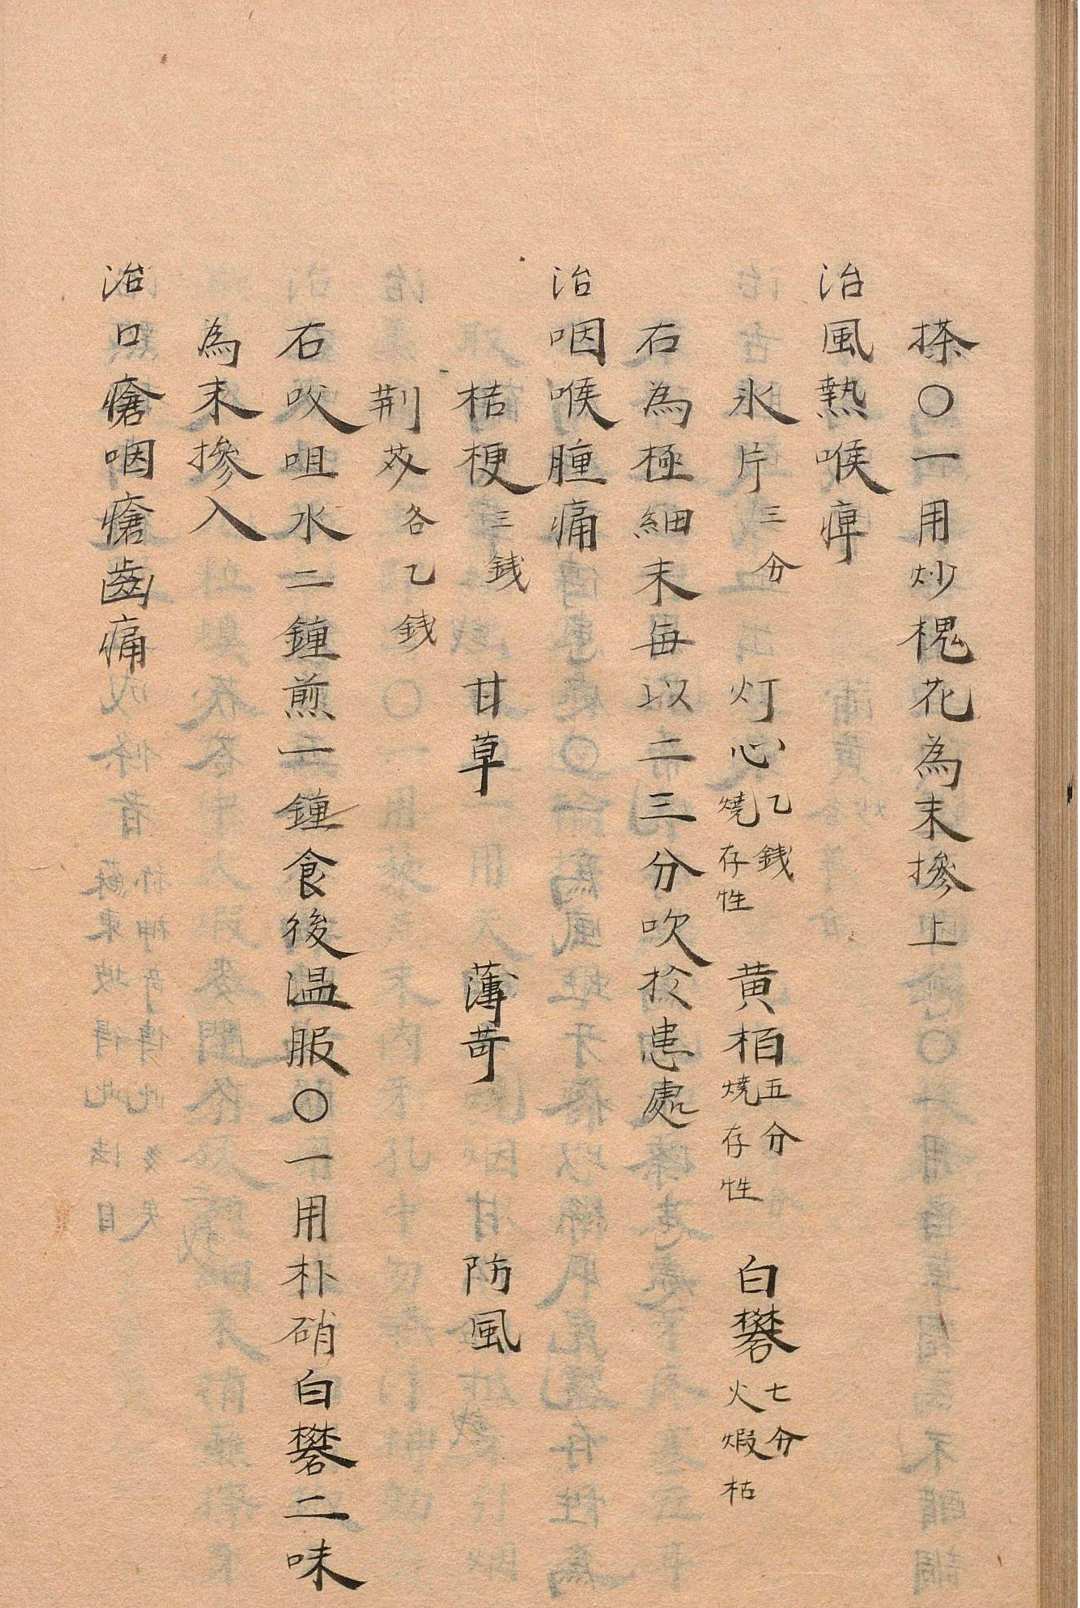 搽〇一用炒槐花為末摻上
治風熱喉痺
氷片三分 灯心乙錢燒存性 黄栢五分燒存性 白礬七分火煅枯
右為極細末每以二三分吹於患處
治咽喉腫痛
桔梗三錢 甘草 薄苛 防風
荆芥各乙錢
右㕮咀水二鐘煎一鐘食後温服〇一用朴硝白礬二味
為末摻入
治口瘡咽瘡齒痛